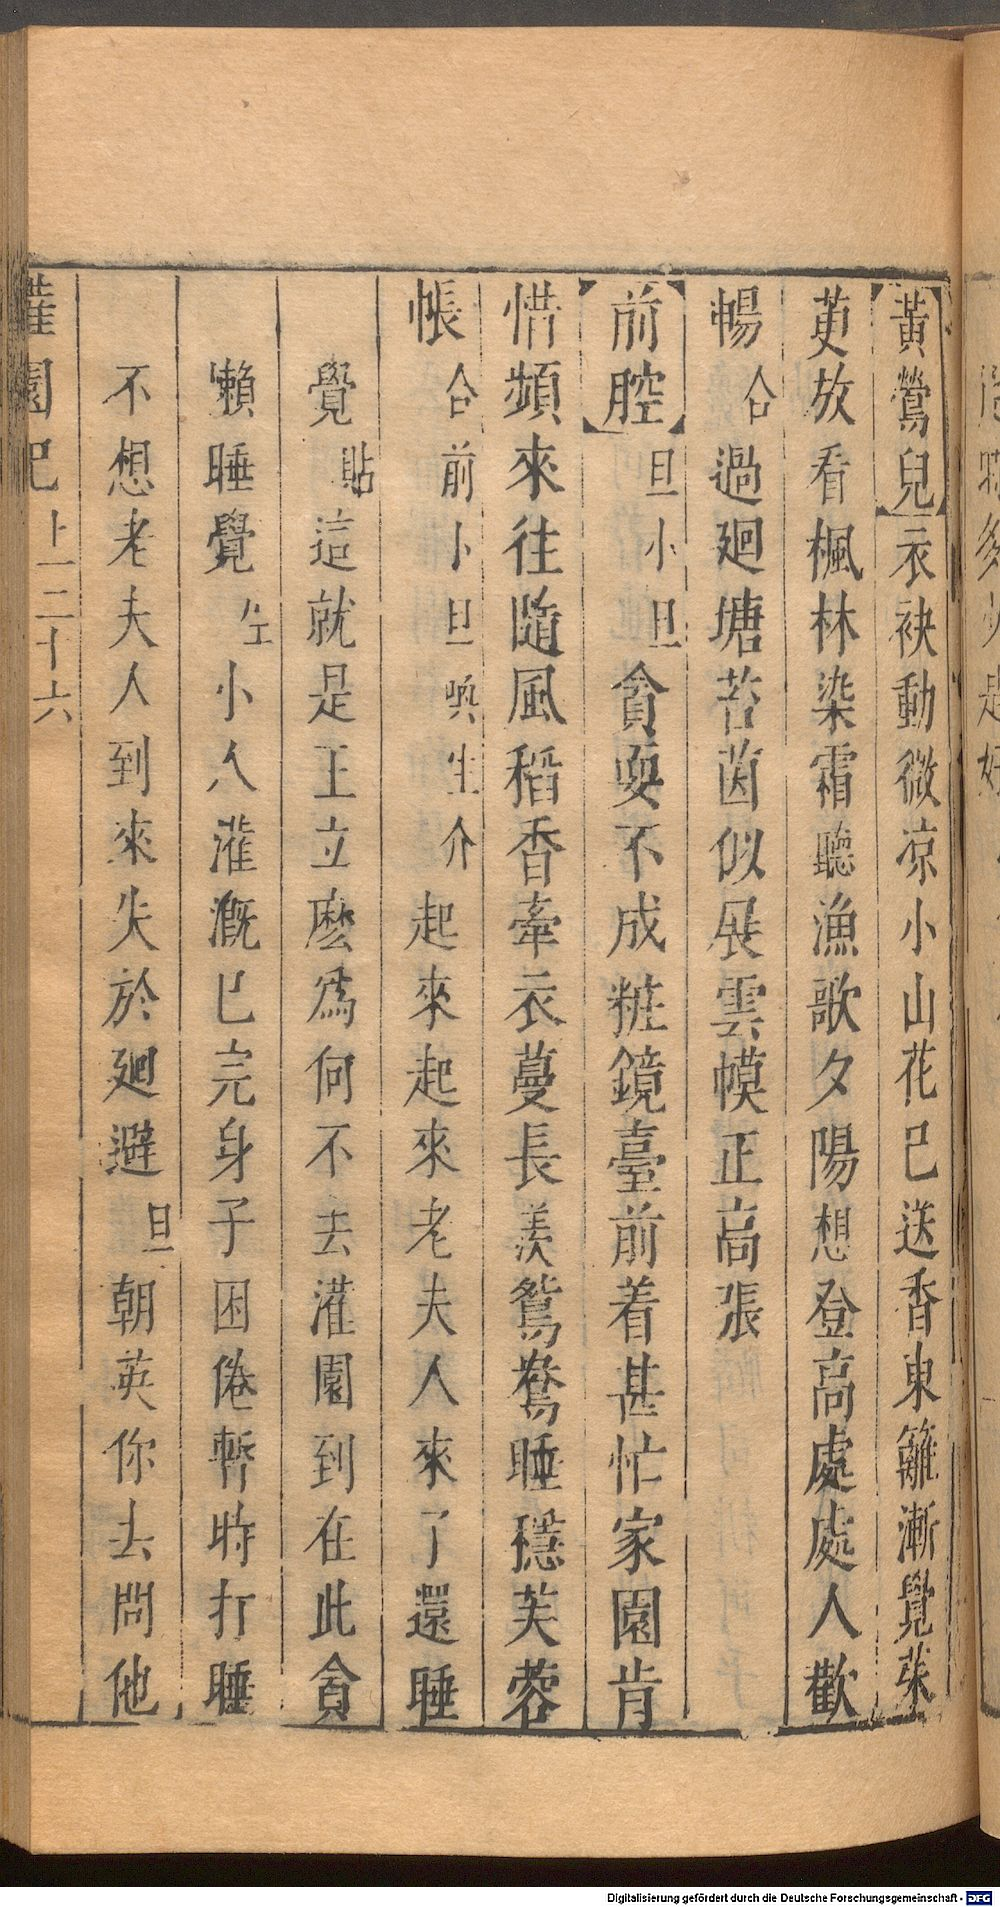 【黃鶯兒】衣袂動微凉小山花已送香東籬漸覺茱
萸放看楓林染霜聽漁歌夕陽想登高處處人歡
暢合過廻塘苔茵似展雲幙正高張
【前腔】旦小旦貪耍不成粧鏡臺前着甚忙家園肯
惜頻來往隨風稻香牽衣蔓長羨鴛鴦睡穩芙蓉
帳合前小旦喚生介起來起來老夫人來了還睡
覺貼這就是王立麽爲何不去灌園到在此貪
懶睡覺生小人灌漑已完身子困倦暫時打睡
不想老夫人到來失於廻避旦朝英你去問他
灌園記 上 二十六
Digitalisierung gefördert durch die Deutsche Forschungsgemeinschaft - DFG